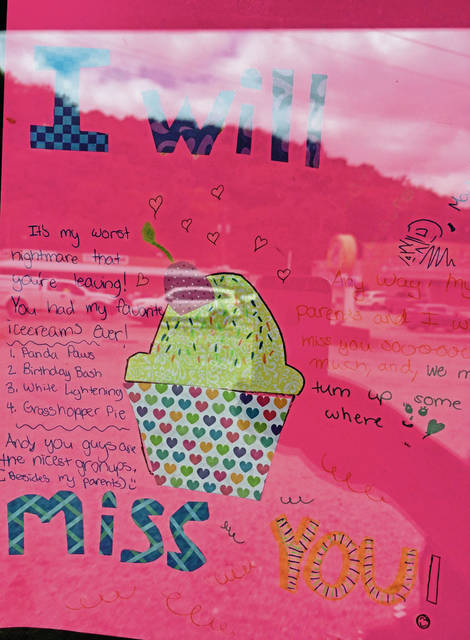 I will
It's my worst
nightmare that
you're leaving!
You had my favorite
icecreams ever!
1. Panda Paws
2. Birthday Bash
3. White Lightening
4. Grasshopper Pie
And you guys are
the nicest gronups.
(Besides my parents)
Any way, my
parents and I w
miss you sooooo
much, and, we m
turn up some
where
Miss
YOU!